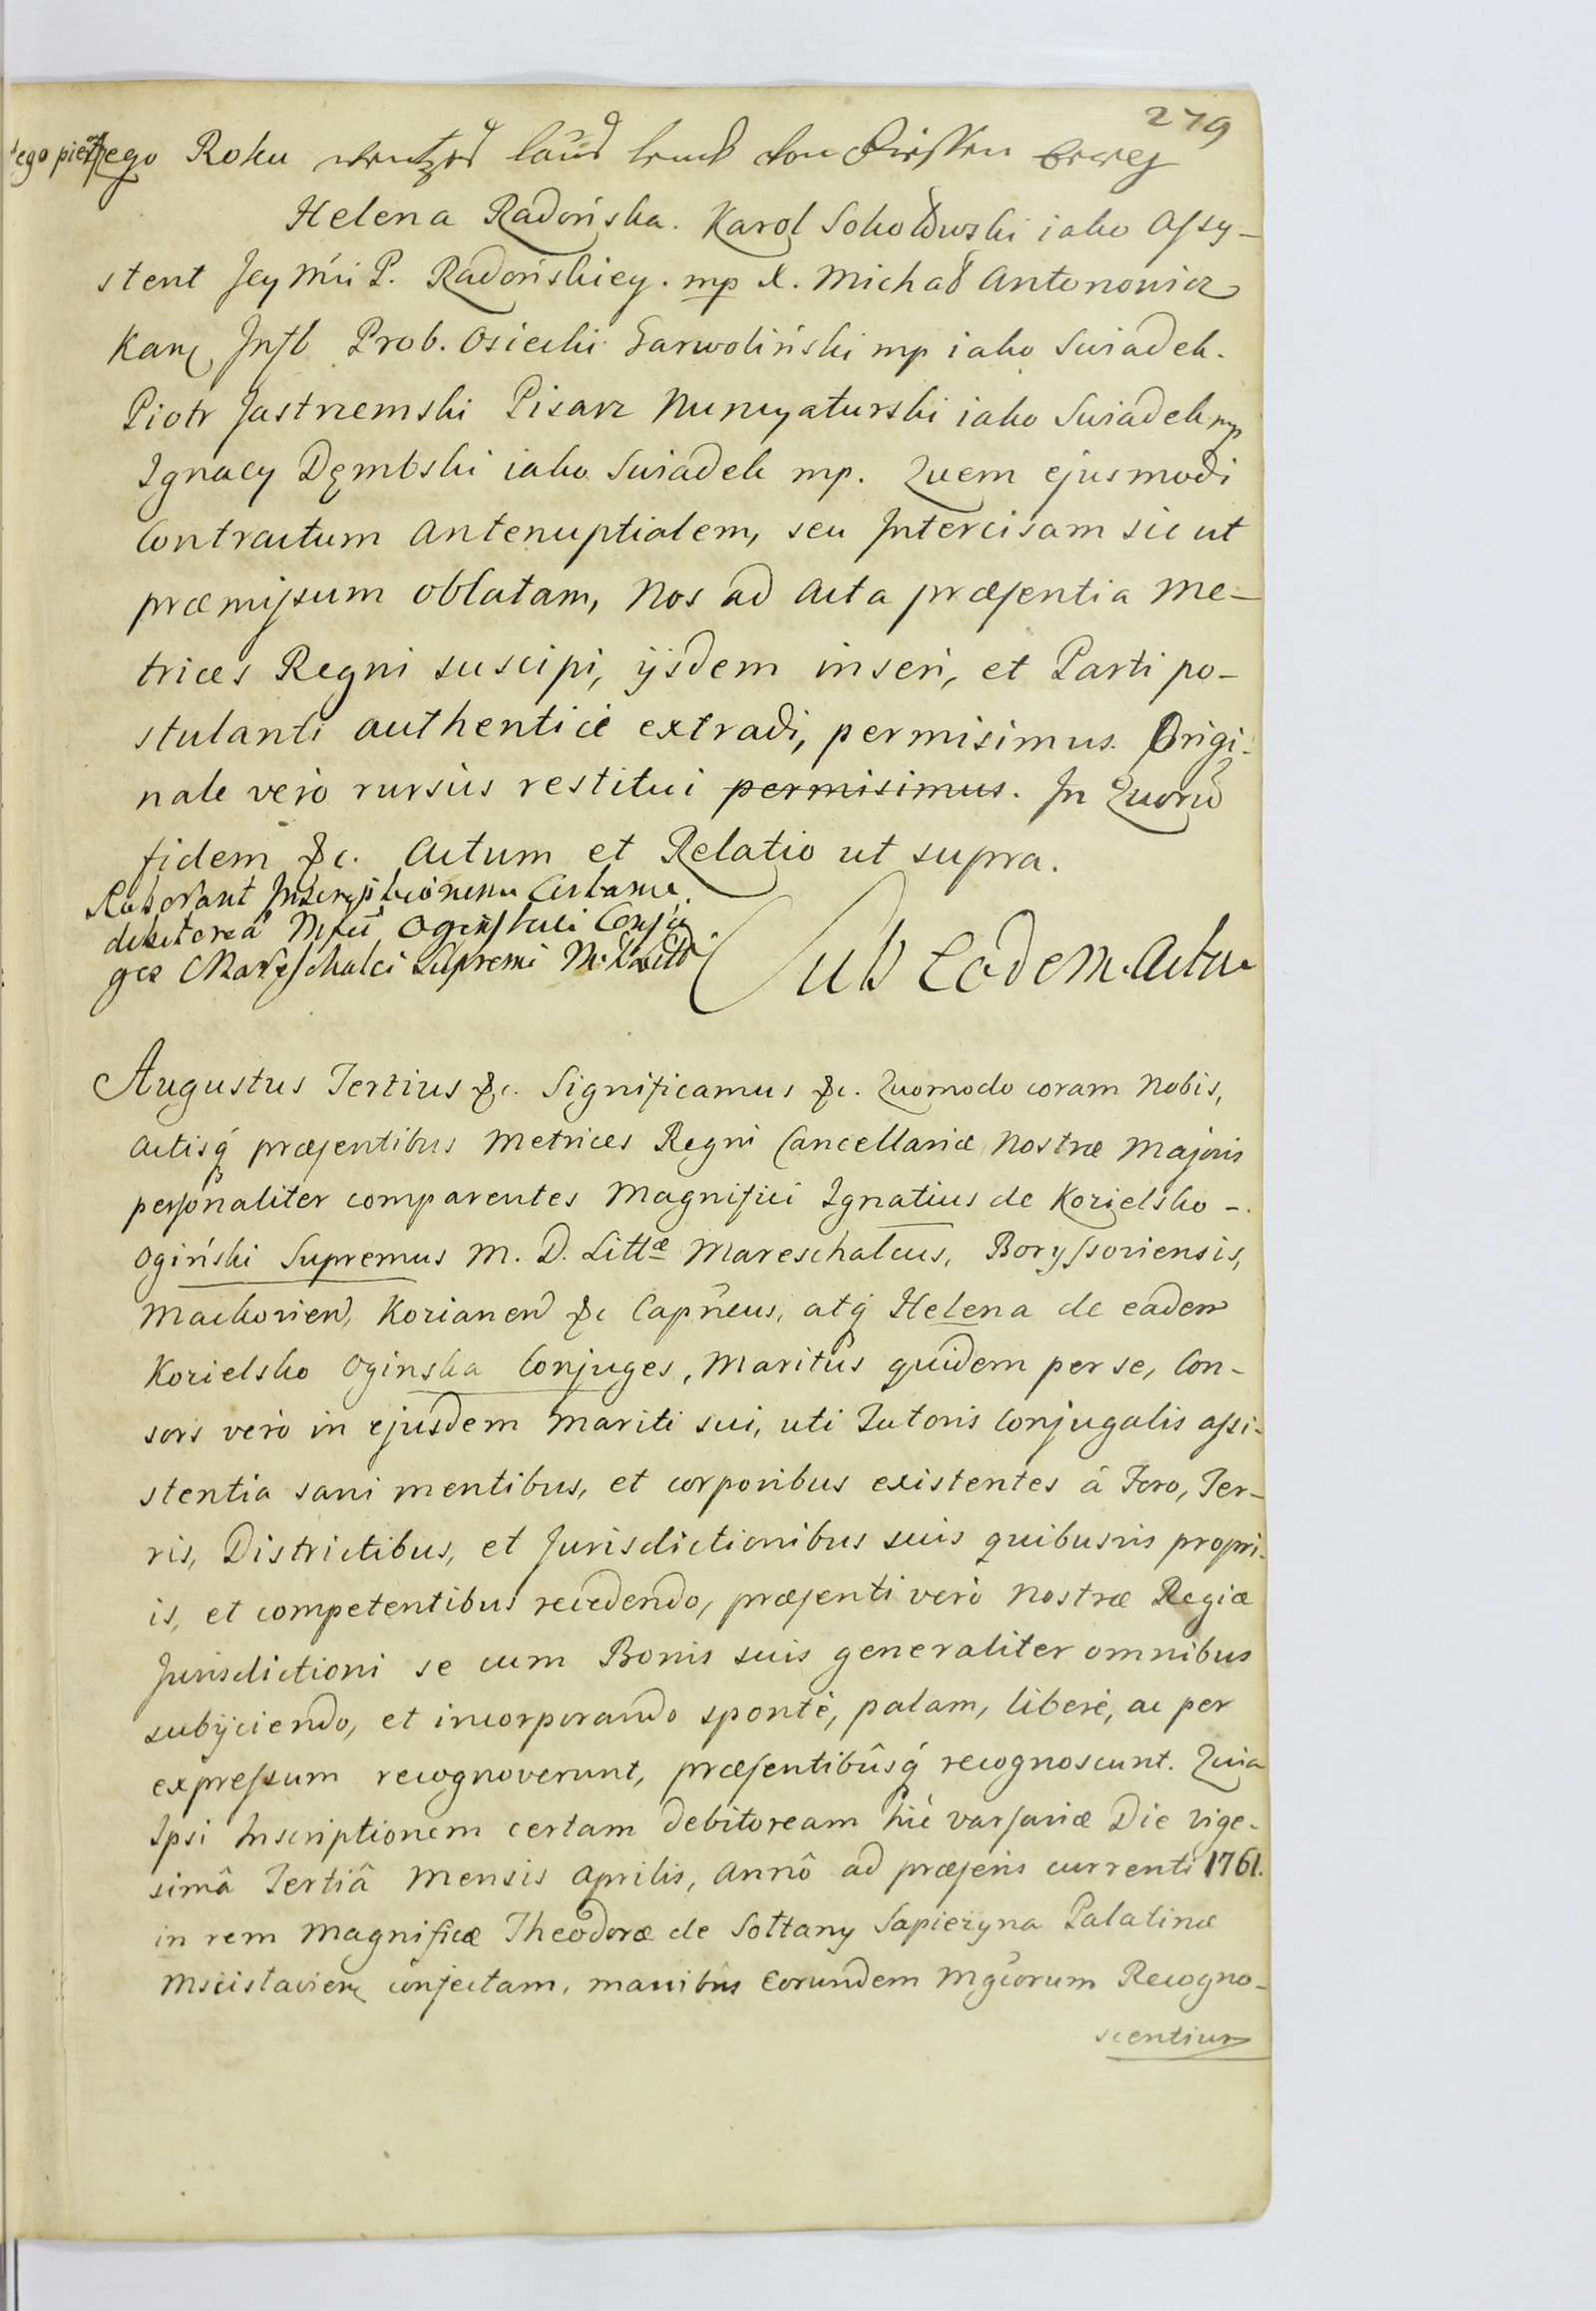 279
tego pierszego Roku
Helena Radońska. Karol Sokołowski iako Assy-
stent Jey Mći P. Radońskiey. mp X. Michał Antonowicz
Kan. Infl Prob. Osiecki Garwoliński mp iako Swiadek.
Piotr Jastrzemski Pisarz Nuncyaturski iako Swiadek mp
Ignacy Dęmbski iako Swiadek mp. Quem ejusmodi
Contractum Antenuptialem, seu Intercisam sic ut
præmissum oblatam, Nos ad Acta præsentia Me-
trices Regni suscipi, ijsdem inseri, et Parti po-
stulanti authenticè extradi, permisimus. Origi-
nale verò rursùs restitui permisimus. In Quorū
fidem &c. Actum et Relatio ut supra.
Roborant Inscriptionem Certame
debitoream Mfci Oginscii Conju
ges Mareschalci Supremi M. D. Litt
Sub Eodem Actu
Augustus Tertius &c. Significamus &c. Quomodo coram Nobis,
Actisq́ præsentibus Metrices Regni Cancellariæ Nostræ Majoris
personaliter comparentes Magnifici Ignatius de Kozielsko -
Ogiński Supremus M. D. Littæ Mareschalcus, Boryssoviensis,
Mackovien, Kozianen &c Capñeus, atq́ Helena de eadem
Kozielsko Oginska Conjuges, Maritûs quidem per se, Con-
sors verò in ejusdem Mariti sui, uti Tutoris Conjugalis assi-
stentia sani mentibus, et corporibus existentes à Foro, Ter-
ris, Districtibus, et Jurisdictionibus suis quibusvis propri-
is, et competentibus recedendo, præsenti verò Nostræ Regiæ
Jurisdictioni se cum Bonis suis generaliter omnibus
subijciendo, et incorporando spontè, palam, liberè, ac per
expressum recognoverunt, præsentibûsq́ recognoscunt. Quia
Ipsi Inscriptionem certam debitoream hìc Varsaviæ Die vige-
simâ Tertiâ Mensis Aprilis, Annô ad præsens currenti 1761.
in rem Magnificæ Theodoræ de Sołtany Sapiezyna Palatinæ
Mscislavien. confectam, manibûs Eorundem Mgcorum Recogno-
scentium